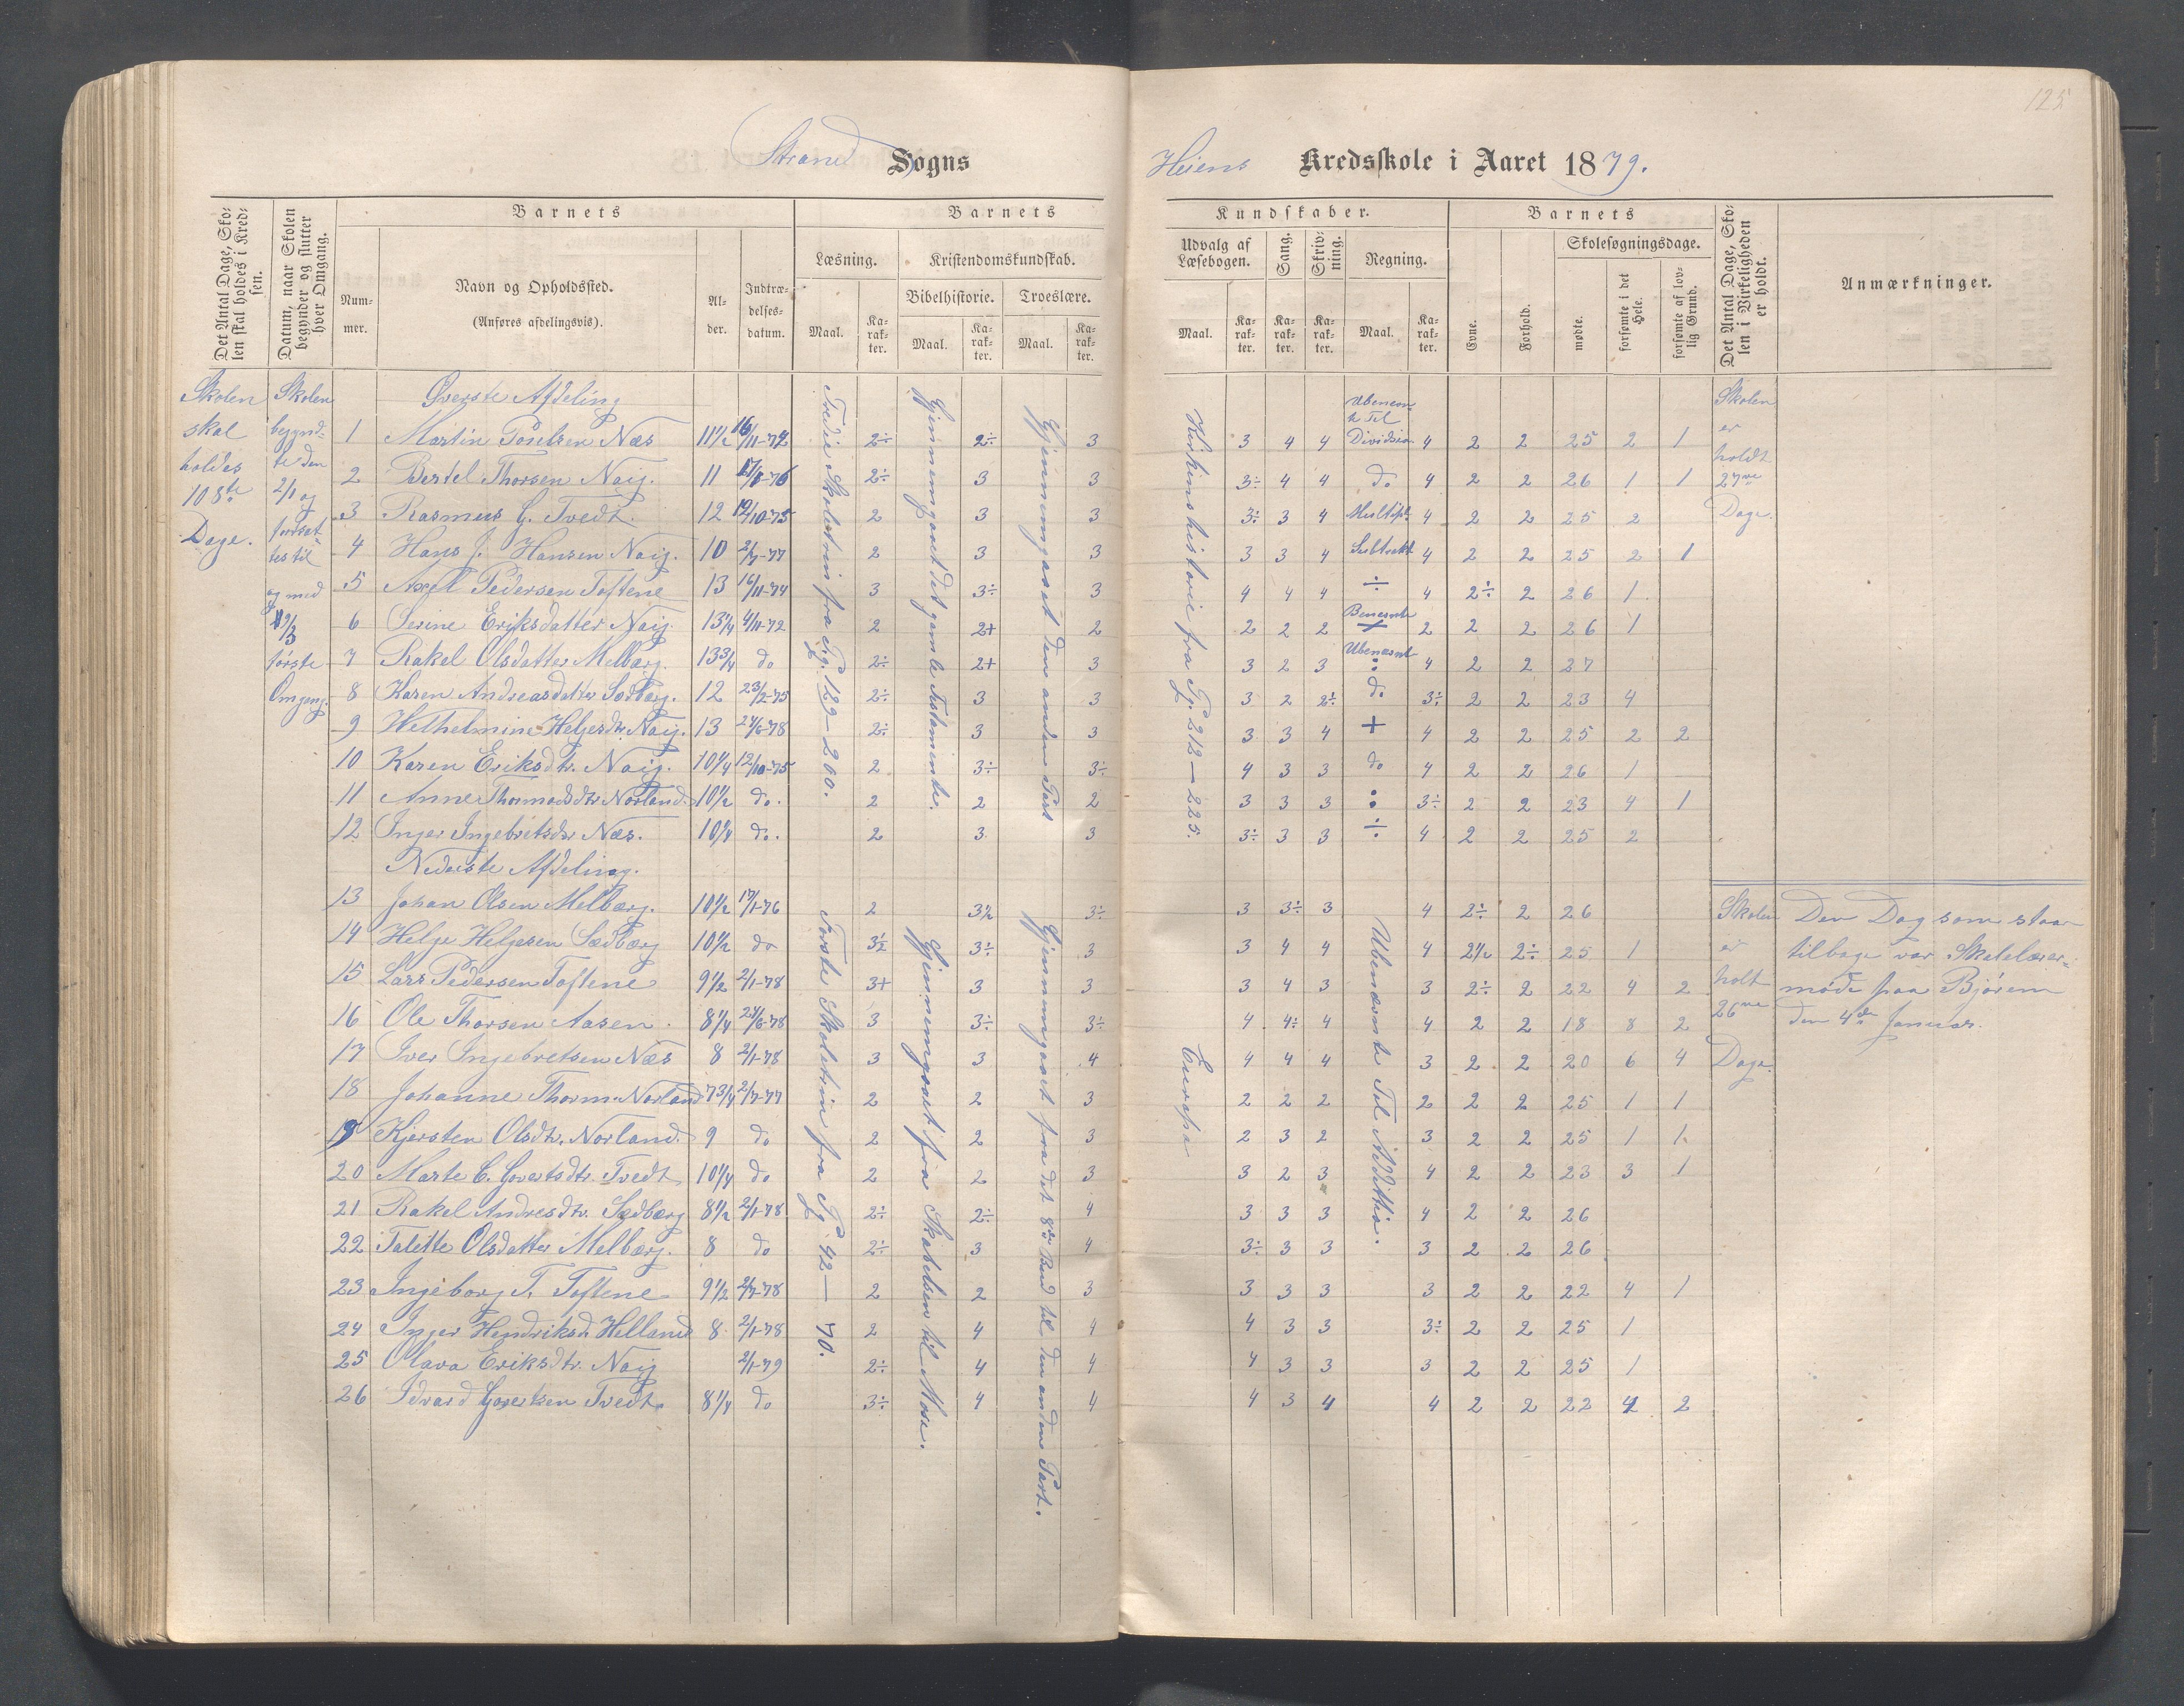 125
Strand Sogns
Heiens Kredsskole i Aaret 1879.
Det Antal Dage, Sko-
len skal holdes i Kred-
sen.
Datum, naar Skolen
begynder og slutter
hver Omgang.
Barnets
Num-
mer.
Navn og Opholdssted.
(Anføres afdelingsvis).
Al-
der.
Indtræ-
delses-
datum.
Barnets
Læsning.
Kristendomskundskab.
Bibelhistorie.
Troeslære.
Maal.
Ka-
rak-
ter.
Maal.
Ka-
rak-
ter.
Maal.
Ka-
rak-
ter.
Kundskaber.
Udvalg af
Læsebogen.
Sang.
Skriv-
ning.
Regning.
Maal.
Ka-
rak-
ter.
Ka-
rak-
ter.
Ka-
rak-
ter.
Maal.
Ka-
rak-
ter.
Barnets
Evne.
Forhold.
Skolesøgningsdage.
mødte.
forsømte i det
Hele.
forsømte af lov-
lig Grund.
Det Antal Dage, Sko-
len i Virkeligheden
er holdt.
Anmærkninger.
Skolen
skal
holdes
108te
Dage.
Skolen
begynd-
te den
2/1 og
fortsat-
tes til
og med
/3
første
Omgang.
Øverste Afdeling
Tredie Skoletrin fra Pg. 129-200.
Gjennemgaaet det gamle Testamente.
Gjennemgaaet den anden Part
Kirkenshistorie fra Pg. 212-225.
Ubenævn-
te Tal
1 Martin Poulsen Næs 11½ 16/11-72 2÷ 2÷ 3 3 4 4 Division 4 2 2 25 2 1
2 Bertel Thorsen Naig. 11 2÷ 3 3 3÷ 4 4 do 4 2 2 26 1 1
3 Rasmus G. Tvedt. 12 12/10-75 2 3 3 3÷ 3 4 Multipl. 4 2 2 25 2
4 Hans J. Hansen Naig. 10 2/7-77 2 3 3 3 3 4 Subtrakt 4 2 2 25 2 1
5 Axel Pedersen Toftene 13 16/11-74 3 3÷ 3 4 4 4 ÷ 4 2÷ 2 26 1
Benævnte
6 Serine Eriksdatter Naig. 13¼ 4/11-72 2 2+ 2 2 2 2 + 2 2 2 26 1
Ubenævnt
7 Rakel Olsdatter Melbærg. 13¾ do 2÷ 2+ 3 3 2 3 : 4 2 2 27
8 Karen Andreasdatter Sædbærg. 12 23/2-75 2÷ 3 3 3 2 2÷ do 3÷ 2 2 23 4
9 Helhelmine Helgesdtr. Naig. 13 24/6-78 2÷ 3 3 3 3 4 + 4 2 2 25 2 2
10 Karen Eriksdtr. Naig. 10¼ 12/10-75 2 3÷ 3÷ 4 3 3 do 4 2 2 26 1
11 Anne Thormodsdtr Norland. 10½ do. 2 2 2 3 3 3 : 3÷ 2 2 23 4 1
12 Inger Ingebritsdtr Næs. 10¼ do. 2 3 3 3÷ 3 3 ÷ 4 2 2 25 2
Skolen
er
holdt
27ve
Dage.
Nederste Afdeling.
Første Skoletrin fra Pg 42 - 70.
Gjennemgaaet fra Skabelsen til Mose.
Gjennemgaaet fra det 8de Bud til den anden Part.
Europa
Ubenævnte Tal Addition.
13 Johan Olsen Melbærg. 10½ 17/1-76 2 3½ 3÷ 3 3÷ 3 4 2÷ 2 26
14 Helge Helgesen Sædbærg 10½ do 3½ 3÷ 3 3 4 4 4 2½ 2÷ 25 1
15 Lars Pedersen Toftene 9½ 2/1-78 3+ 3 3 3 4 3 3 2÷ 2 22 4 2
16 Ole Thorsen Aasen. 8¼ 24/6-78 3 3÷ 3÷ 4 4÷ 4 4 2 2 18 8 2
17 Iver Ingebretsen Næs 8 2/1-78 3 3 4 4 4 4 3 2 2 20 6 4
18 Johanne Thorm. Norland 7¾ 2/7-77 2 2 3 2 2 2 2 2 2 25 1 1
19 Kjersten Olsdtr. Norland. 9 do 2 2 3 2 3 2 3 2 2 25 1 1
20 Marte C. Govertsdtr. Tvedt 10¼ do 2 2 3 3 2 3 4 2 2 23 3 1
21 Rakel Andresdtr. Sædbærg 8½ 2/1-78 2÷ 2÷ 4 3 3 3 4 2 2 26
22 Talette Olsdatter Melbærg. 8 do 2÷ 3 4 3÷ 3 3 3 2 2 26
23 Ingeborg T. Toftene 9½ 2/7-78 2 2 3 3 3 3 3 2 2 22 4 1
24 Inger Hendriksd. Helland 8 2/1-78 2 4 4 4 3 3 3÷ 2 2 25 1
25 Olava Eriksdtr. Naig 2/1-79 2÷ 4 4 4 3 3 3 2 2 25 1
26 Edvard Govertsen Tvedt. 8¼ do 3÷ 4 4 4 3 4 4 2 2 22 4 2
Skolen
er
holt
26ve
Dage.
Den Dag som staar
tilbage var Skolelærer-
møde paa Bjøreim
den 4de Januar.